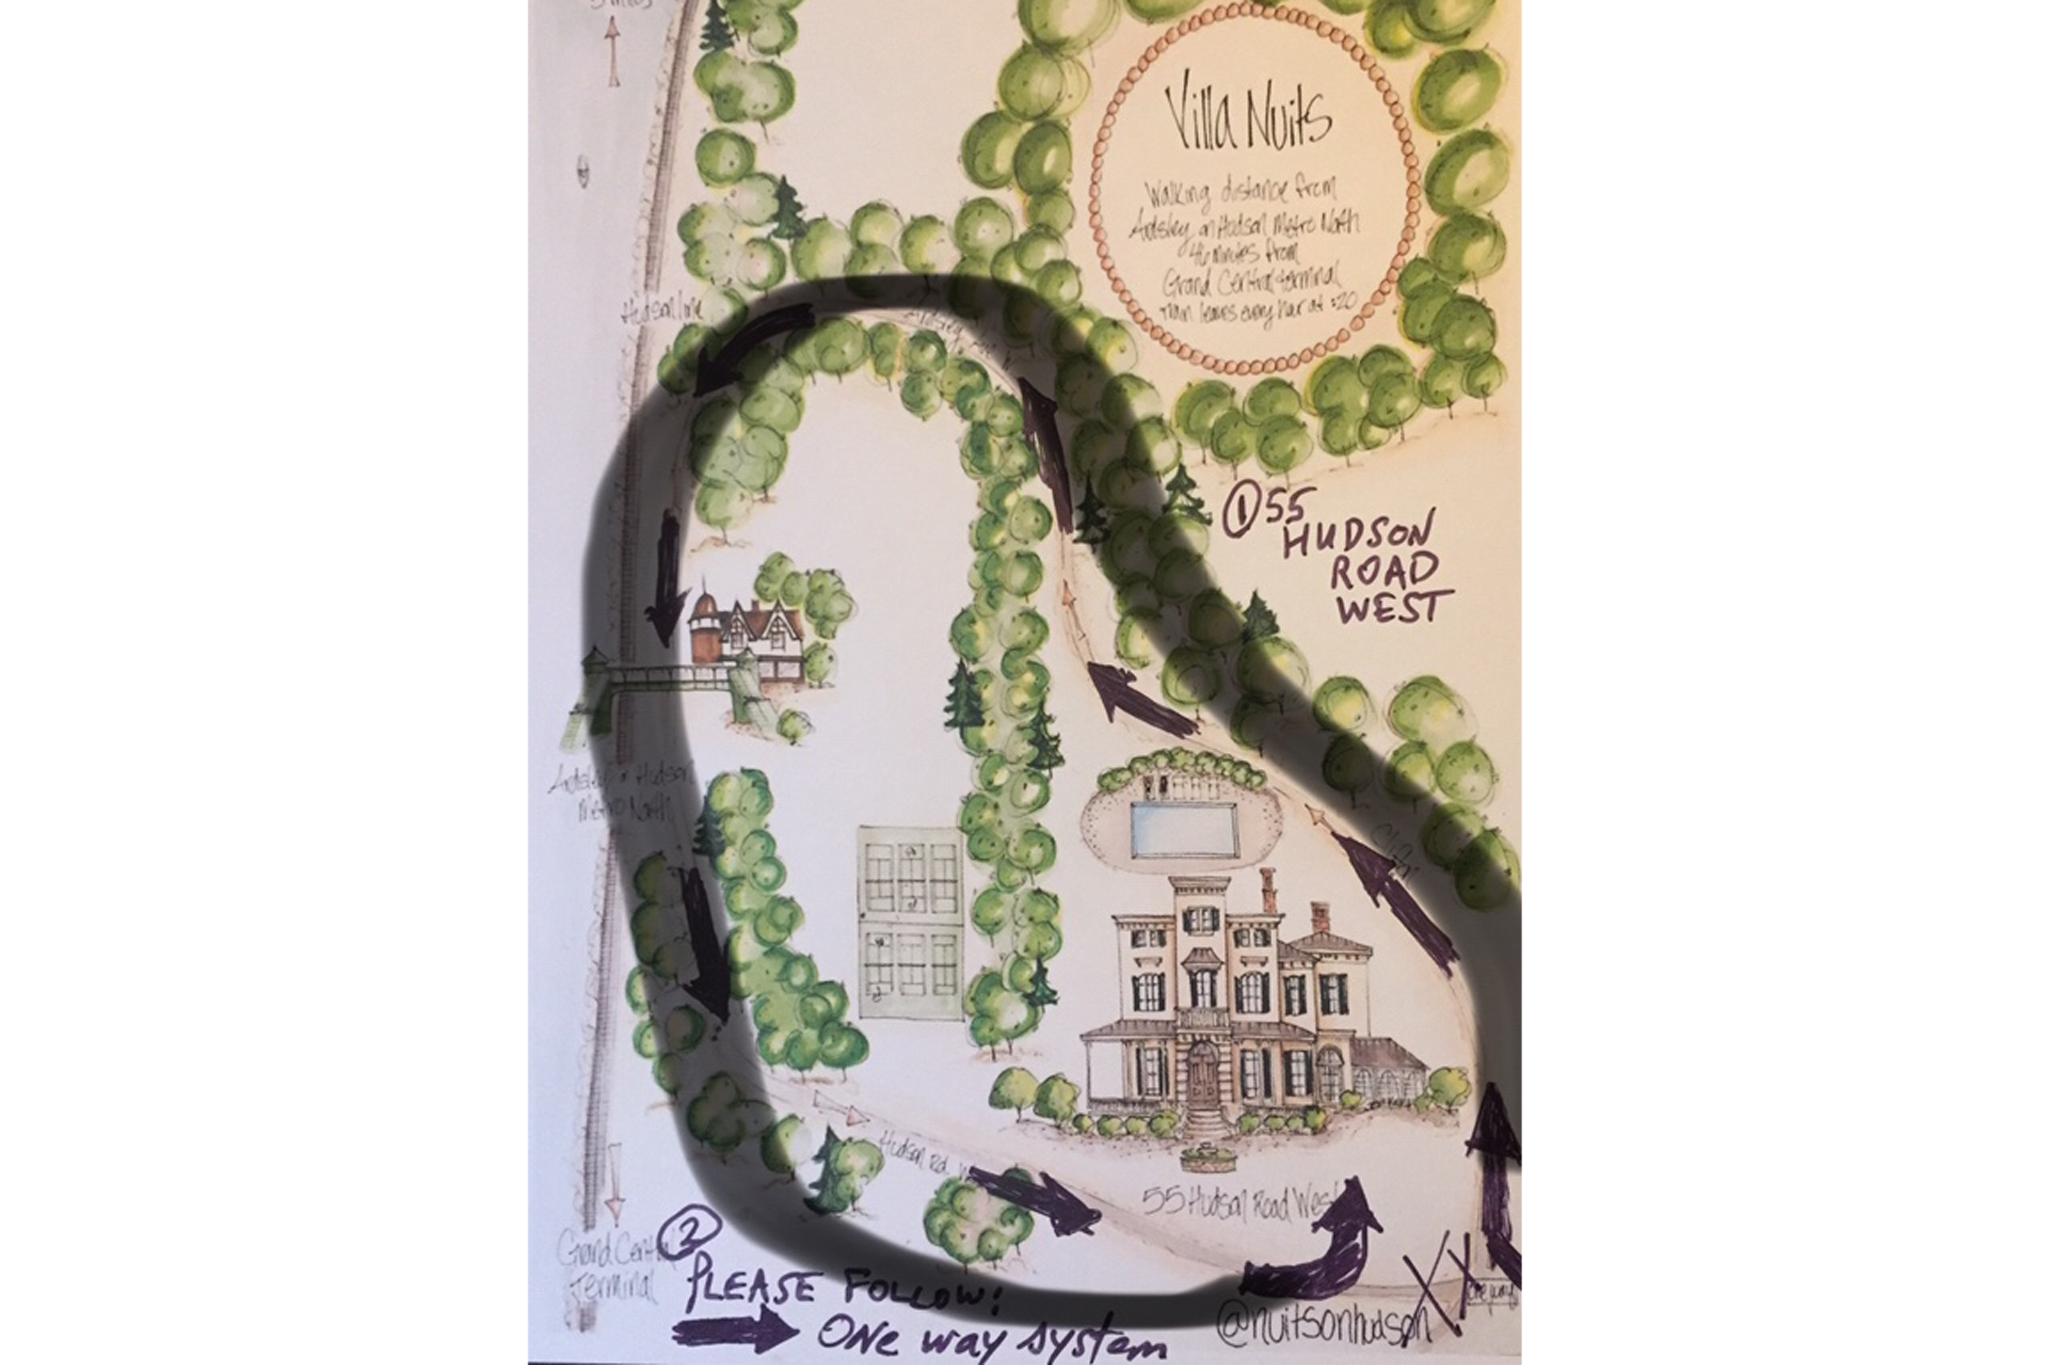 5 miles
Villa Nuits
Walking distance from
Ardsley on Hudson Metro North
46 minutes from
Grand Central terminal
Train leaves every hour at :20
Hudson line
① 55
HUDSON
ROAD
WEST
Ardsley on Hudson
Metro North
Hudson Rd. W
55 Hudson Road West
Grand Central
Terminal
②
PLEASE FOLLOW:
ONE way system
XX
one way
@nuitsonhudson